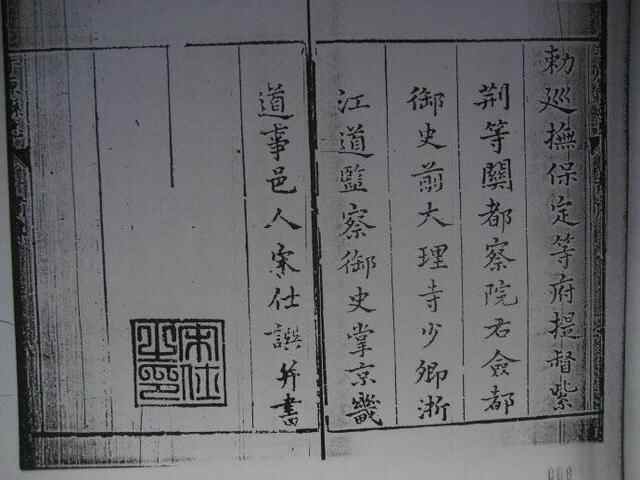 勅廵撫保定等府提督紫
荆等關都察院右僉都
御史前大理寺少卿浙
江道監察御史掌京畿
道事邑人宋仕譔并書
宋仕
之印